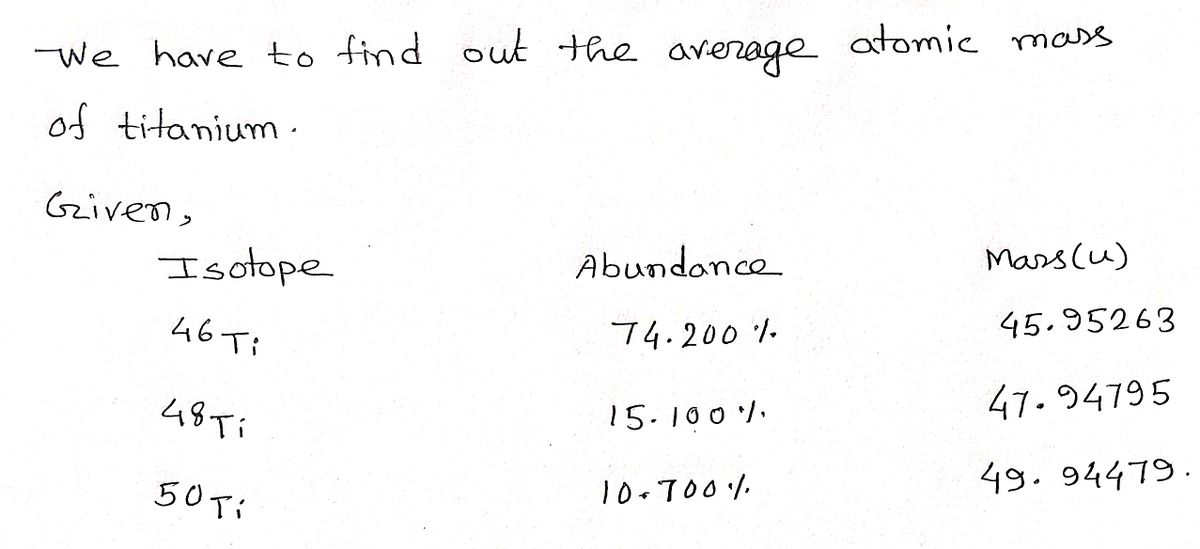 We have to find out the average atomic mass
of titanium.
Given,
Isotope Abundance Mass(u)
46Ti 74.200% 45.95263
48Ti 15.100% 47.94795
50Ti 10.700% 49.94479.